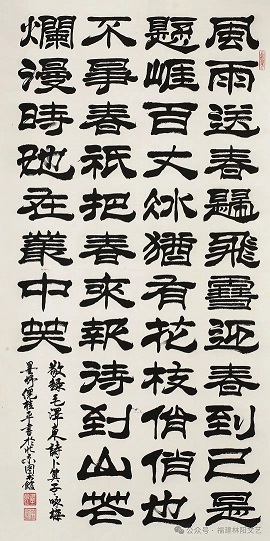 風雨送春歸飛雪迎春到已是
懸崖百丈冰猶有花枝俏俏也
不爭春祇把春來報待到山花
爛漫時她在叢中笑
敬錄毛澤東詩卜算子咏梅
書於北京
公众号·福建林阳文艺